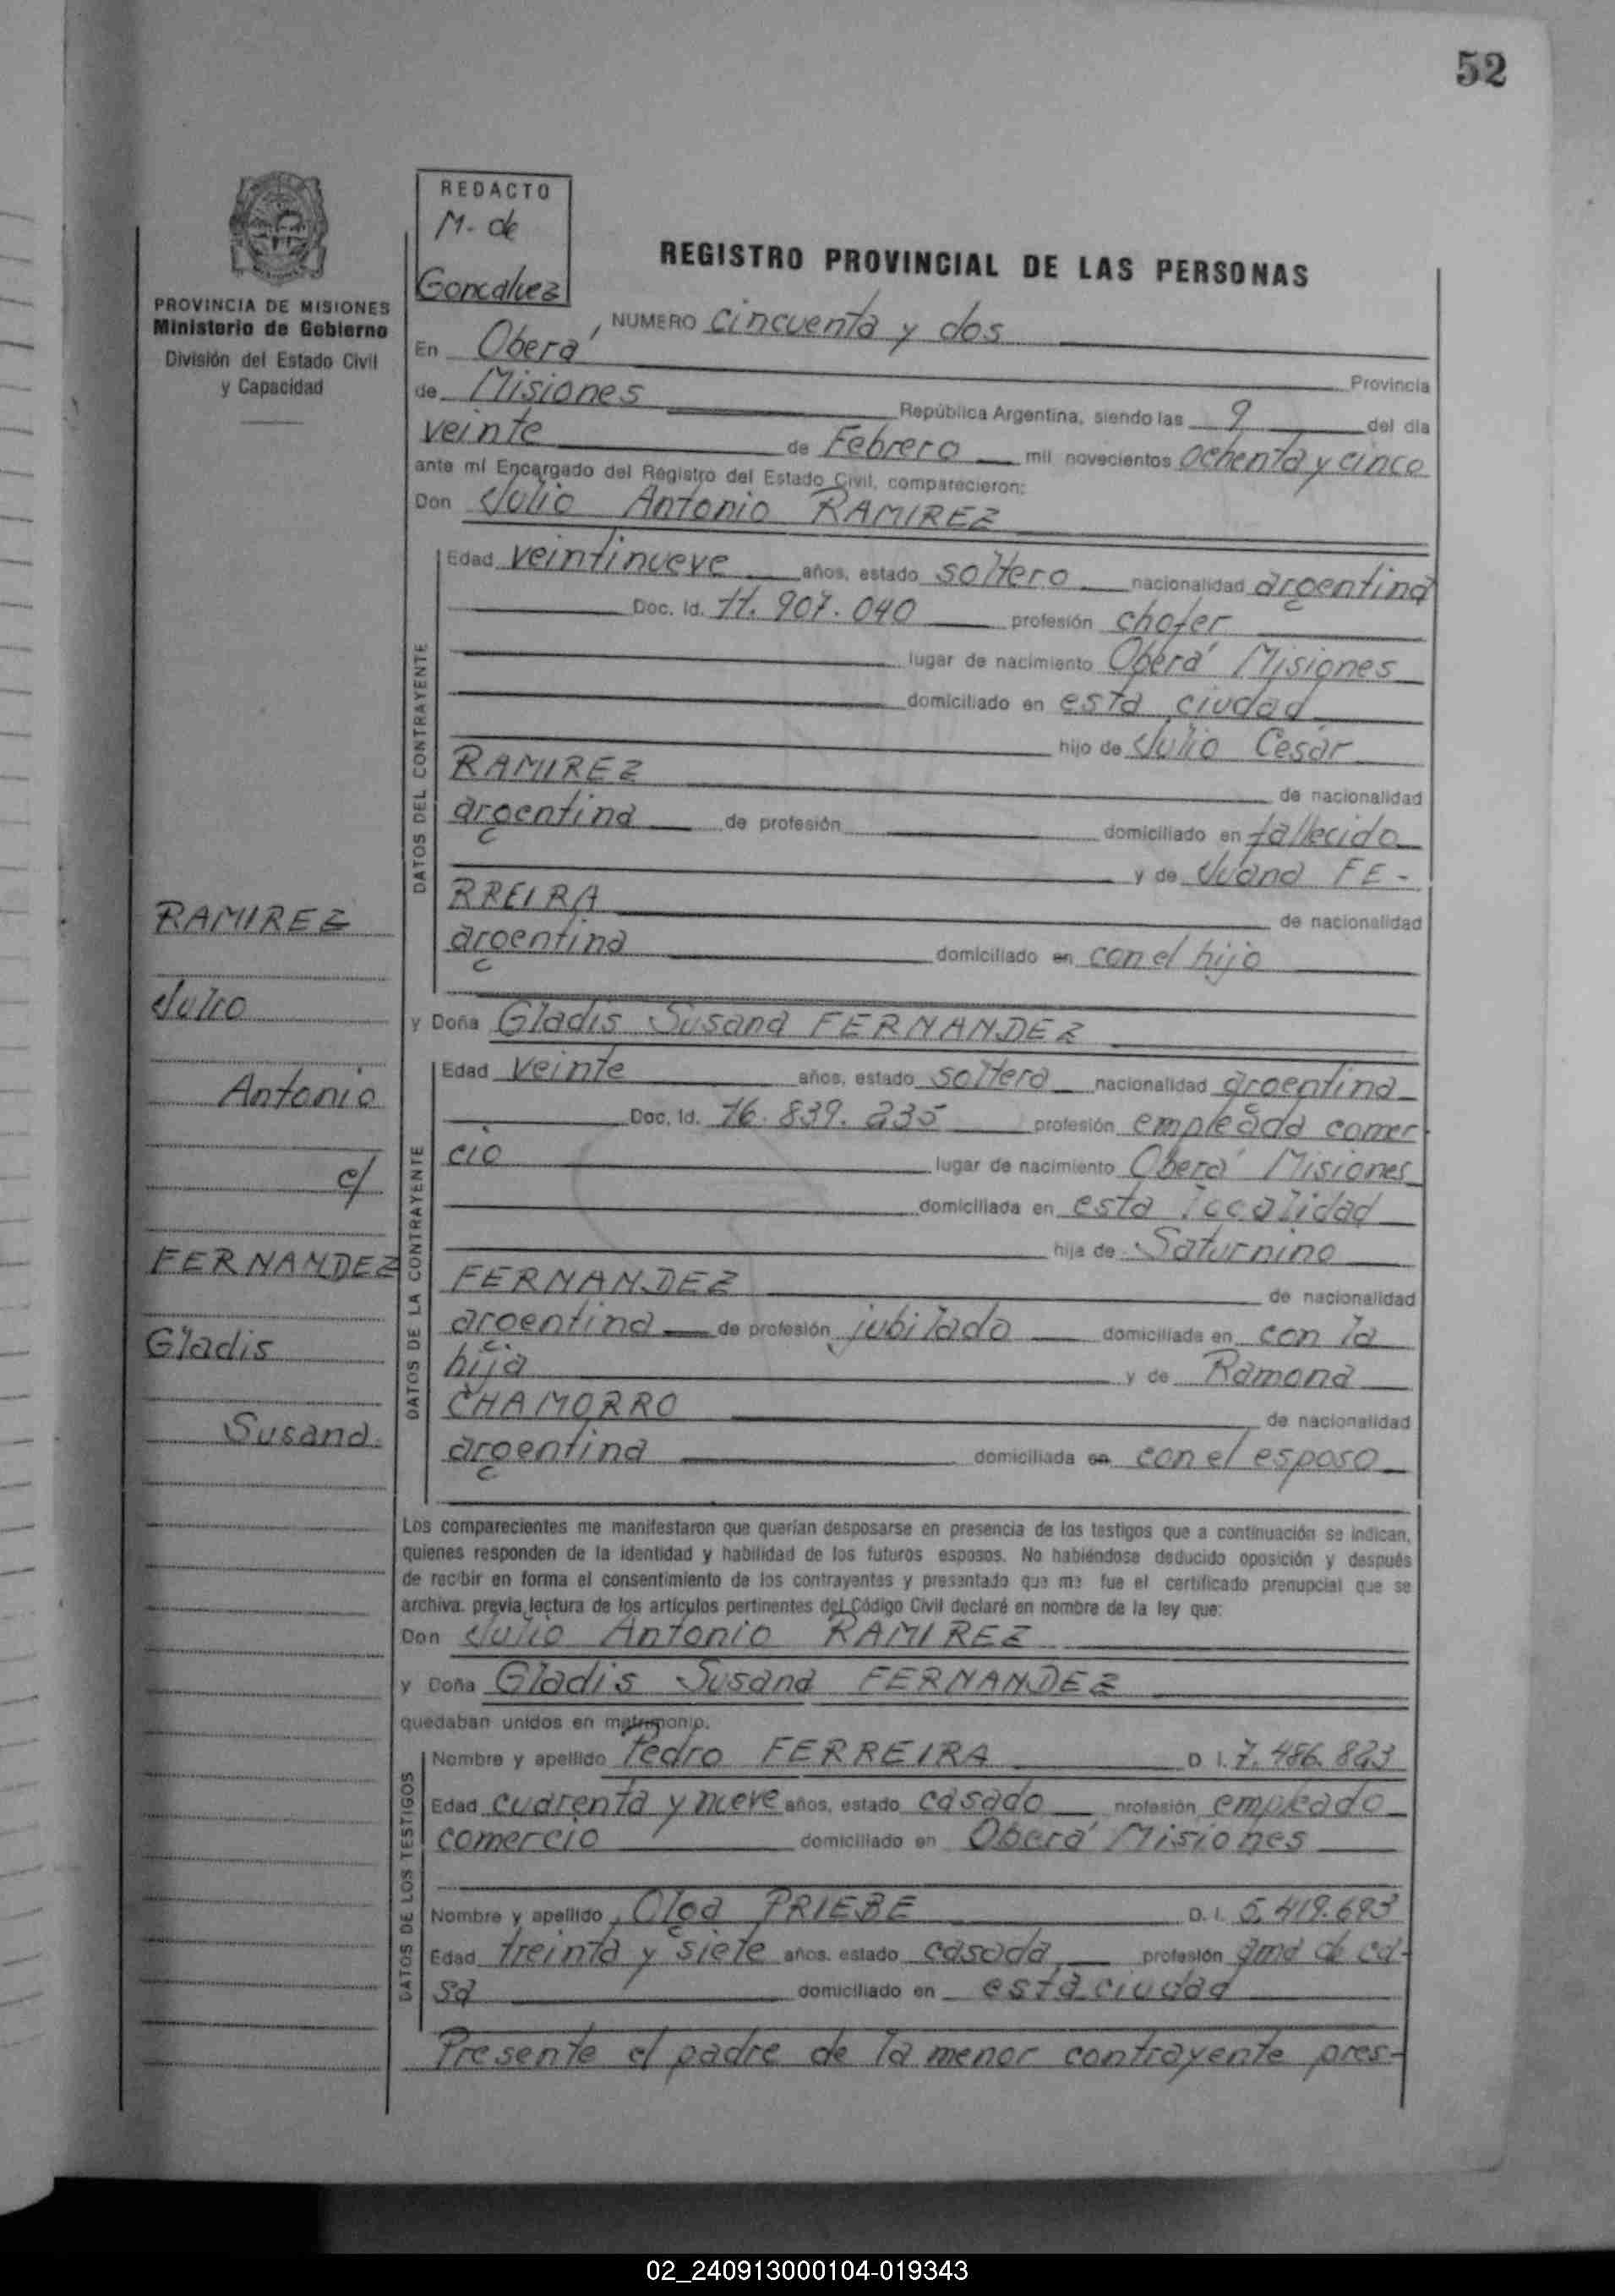 52
REDACTO
M. de
Goncalvez
REGISTRO PROVINCIAL DE LAS PERSONAS
PROVINCIA DE MISIONES
Ministerio de Gobierno
División del Estado Civil
y Capacidad
NUMERO cincuenta y dos
En Oberá Provincia
de Misiones República Argentina, siendo las 9 del día
veinte de Febrero mil novecientos ochenta y cinco
ante mí Encargado del Registro del Estado Civil, comparecieron:
Don Julio Antonio RAMIREZ
DATOS DEL CONTRAYENTE
Edad veintinueve años, estado soltero nacionalidad argentina
Doc. Id. 11.907.040 profesión chofer
lugar de nacimiento Oberá Misiones
domiciliado en esta ciudad
hijo de Julio Cesar
RAMIREZ de nacionalidad
argentina de profesión domiciliado en fallecido
y de Juana FE-
RREIRA de nacionalidad
argentina domiciliado en con el hijo
y Doña Gladis Susana FERNANDEZ
DATOS DE LA CONTRAYENTE
Edad veinte años, estado soltera nacionalidad argentina
Doc. Id. 16.839.235 profesión empleada comer
cio lugar de nacimiento Oberá Misiones
domiciliada en esta localidad
hija de Saturnino
FERNANDEZ de nacionalidad
argentina de profesión jubilado domiciliada en con la
hija y de Ramona
CHAMORRO de nacionalidad
argentina domiciliada en con el esposo
RAMIREZ
Julio
Antonio
c/
FERNANDEZ
Gladis
Susana
Los comparecientes me manifestaron que querían desposarse en presencia de los testigos que a continuación se indican,
quienes responden de la identidad y habilidad de los futuros esposos. No habiéndose deducido oposición y después
de recibir en forma el consentimiento de los contrayentes y presentado que me fue el certificado prenupcial que se
archiva, previa lectura de los artículos pertinentes del Código Civil declaré en nombre de la ley que:
Don Julio Antonio RAMIREZ
y Doña Gladis Susana FERNANDEZ
quedaban unidos en matrimonio.
DATOS DE LOS TESTIGOS
Nombre y apellido Pedro FERREIRA D. I. 7.486.823
Edad cuarenta y nueve años, estado casado profesión empleado
comercio domiciliado en Oberá Misiones
Nombre y apellido Olga PRIEBE D. I. 5.419.693
Edad treinta y siete años, estado casada profesión ama de ca-
sa domiciliado en esta ciudad
Presente el padre de la menor contrayente pres-
02_240913000104-019343